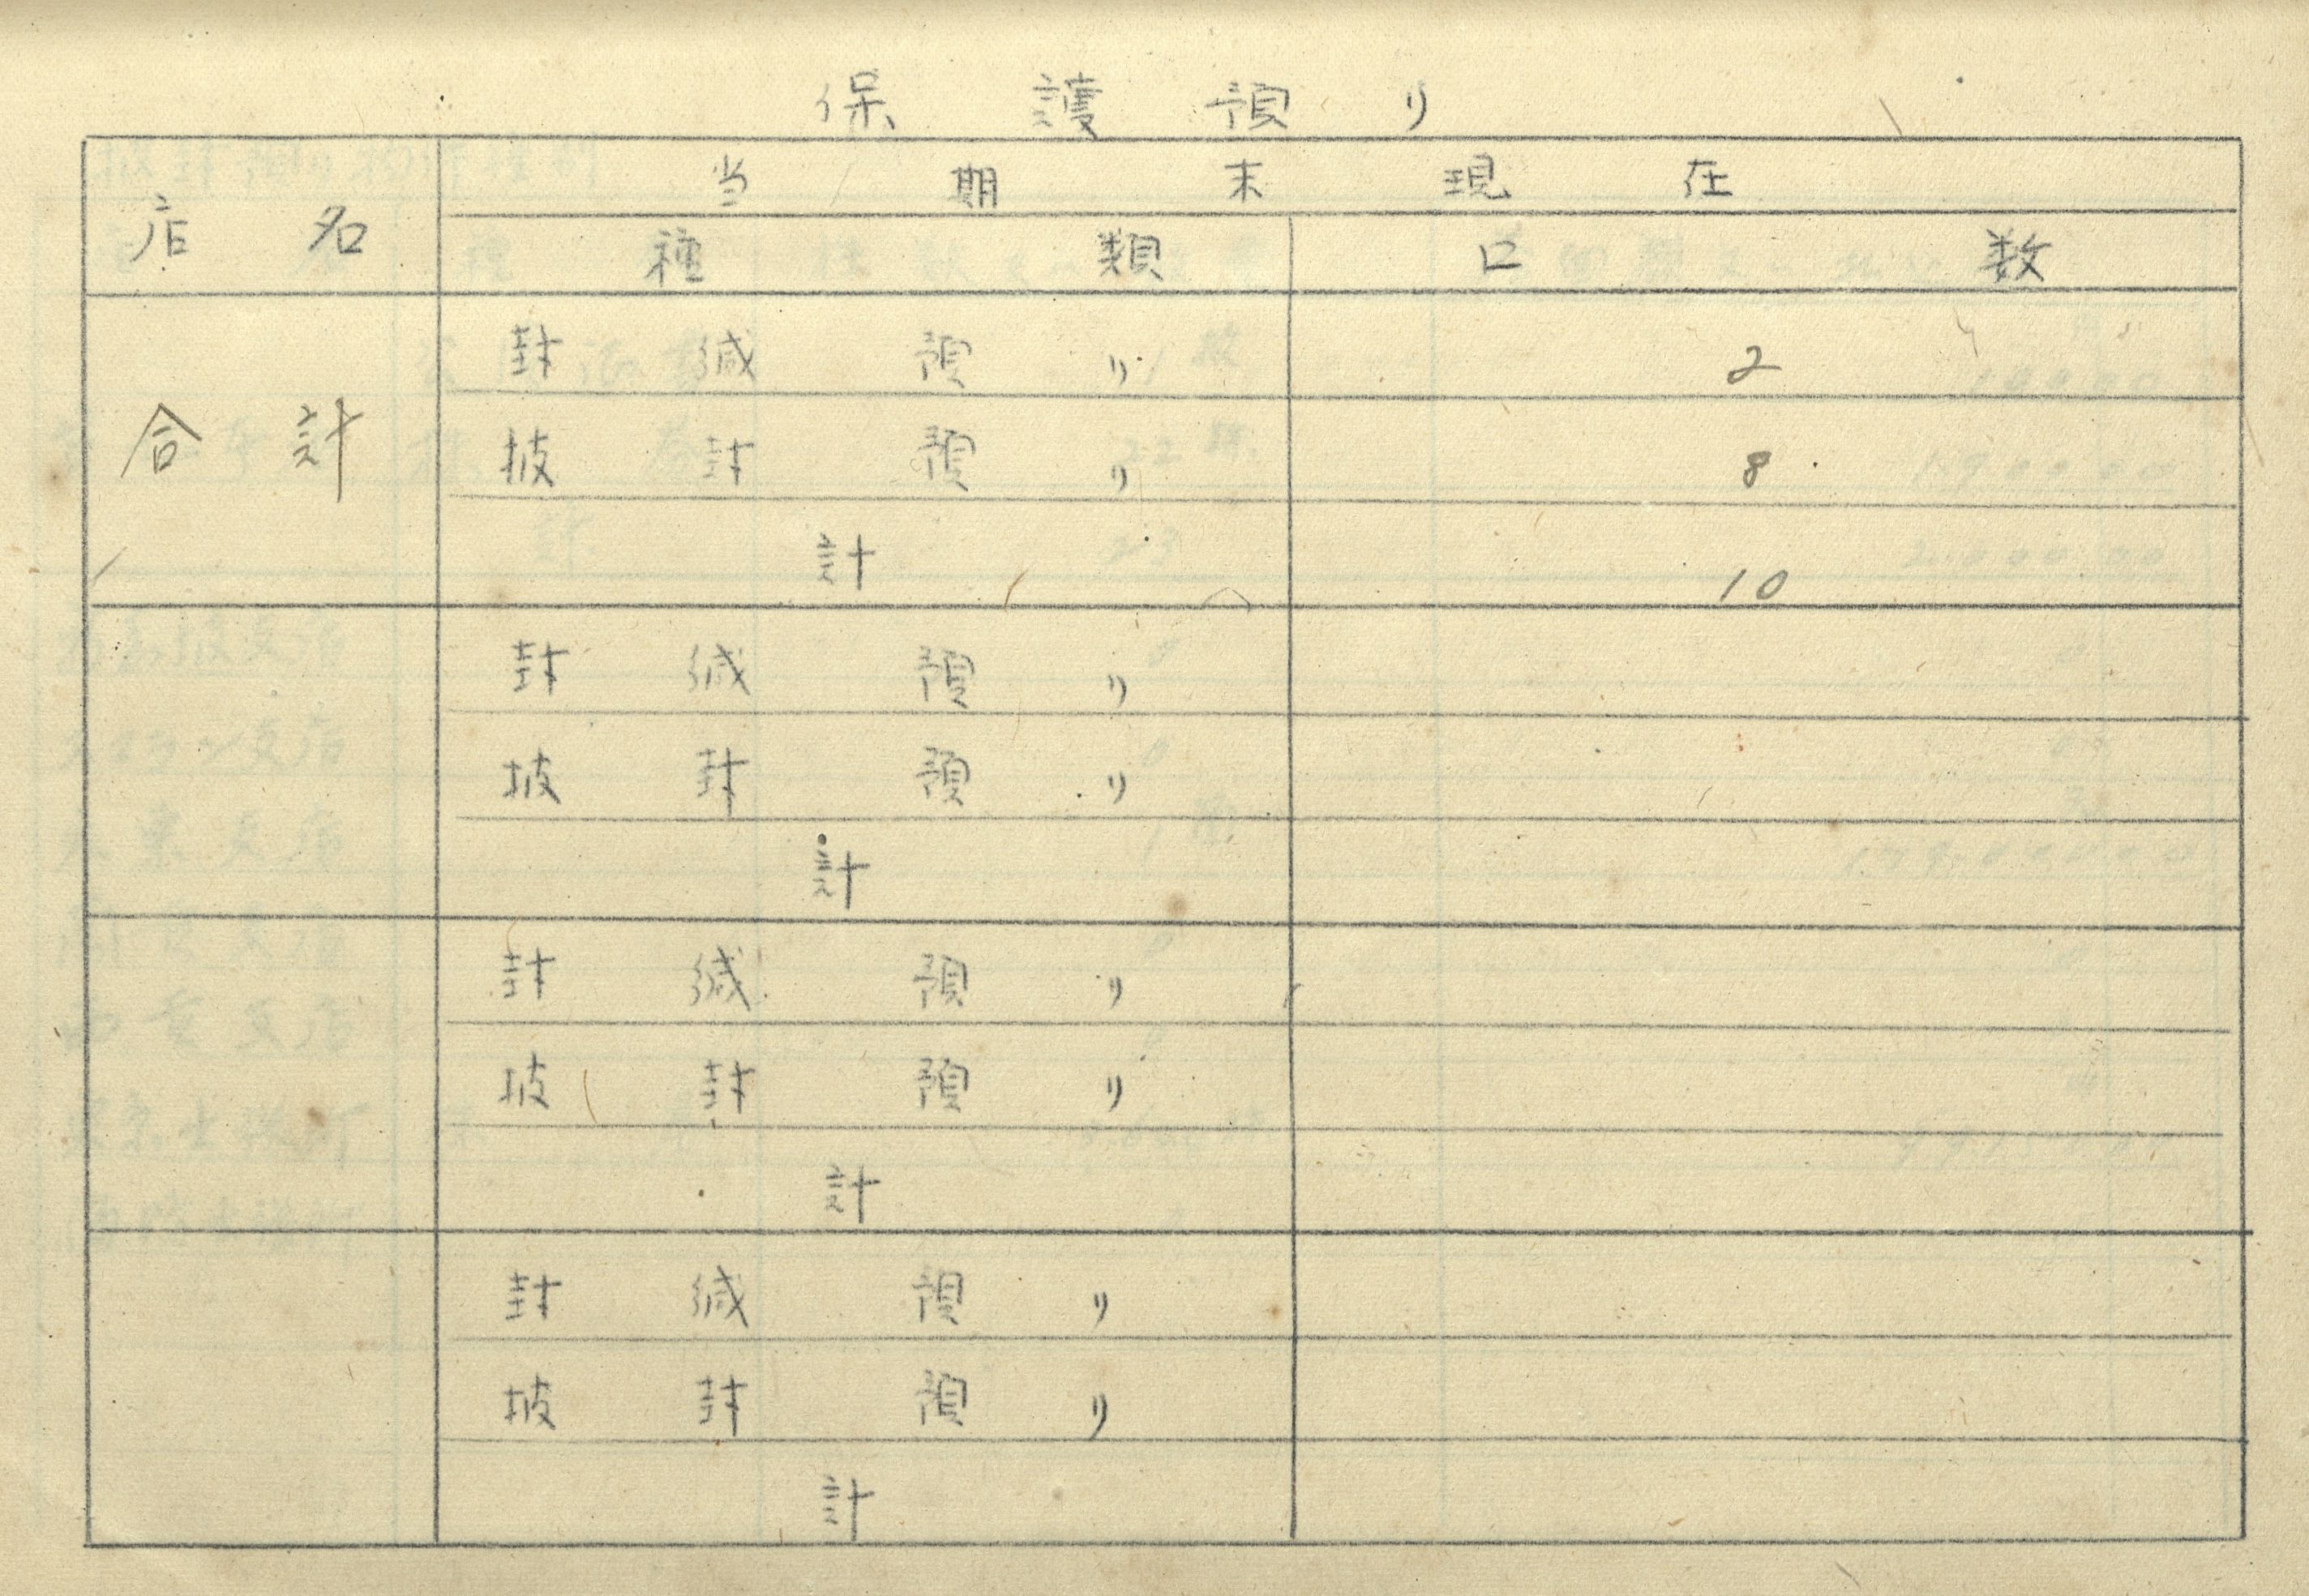 保護預り
当期末現在
店名
種類 口数
封緘預り 2
披封預り 8
合計
計 10
封緘預り
披封預り
計
封緘預り
披封預り
計
封緘預り
披封預り
計